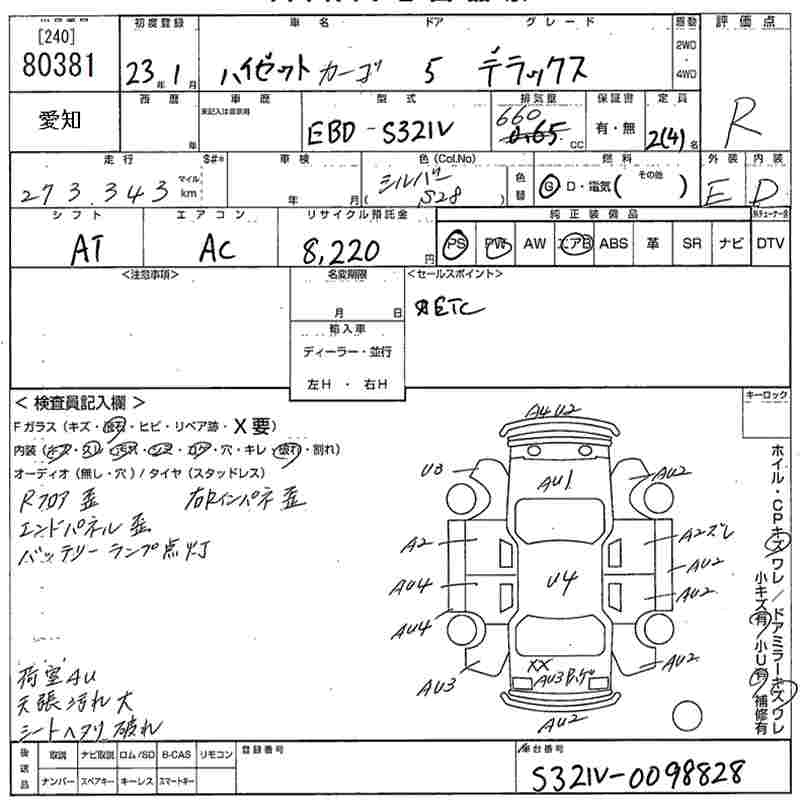 [240]
80381
愛知
初度登録 車名 ドア グレード 駆動 評価点
23年1月 ハイゼットカーゴ 5 デラックス 2WD・4WD R
西暦 車歴 型式 排気量 保証書 定員
年 未記入は自家用 EBD-S321V 660 0.65 cc 有・無 2(4)名
走行 S#* 車検 色(Col.No) 燃料 外装 内装
273,343 マイル km 年 月 (シルバー S28) 色替 G D・電気( その他 ) E D
シフト エアコン リサイクル預託金 純正装備品
AT AC 8,220円 PS PW AW エアB ABS 革 SR ナビ DTV
<注意事項> 名変期限 <セールスポイント>
月 日 ETC
輸入車
ディーラー・並行
左H・右H
<検査員記入欄> キーロック
Fガラス(キズ・飛石・ヒビ・リペア跡・X要)
内装(キズ・スレ・汚レ・コゲ・穴・キレ・破れ・割れ)
オーディオ(無し・穴)/タイヤ(スタッドレス)
Rフロア歪 右Rインパネ歪
エンドパネル歪
バッテリーランプ点灯
荷室AU
天張汚れ大
シートヘタリ破れ
A4U2
U3 AU1 AU2
A2 A2ズレ
AU2
AU4 U4 AU2
AU4
AU3 XX AU3 AU2
AU2
ホイル・CPキズワレ/ドアミラーキズワレ
小キズ有/小U有/補修有
後送品 取説 ナビ取説 ロム/SD B-CAS リモコン 登録番号 車台番号
ナンバー スペアキー キーレス スマートキー S321V-0098828